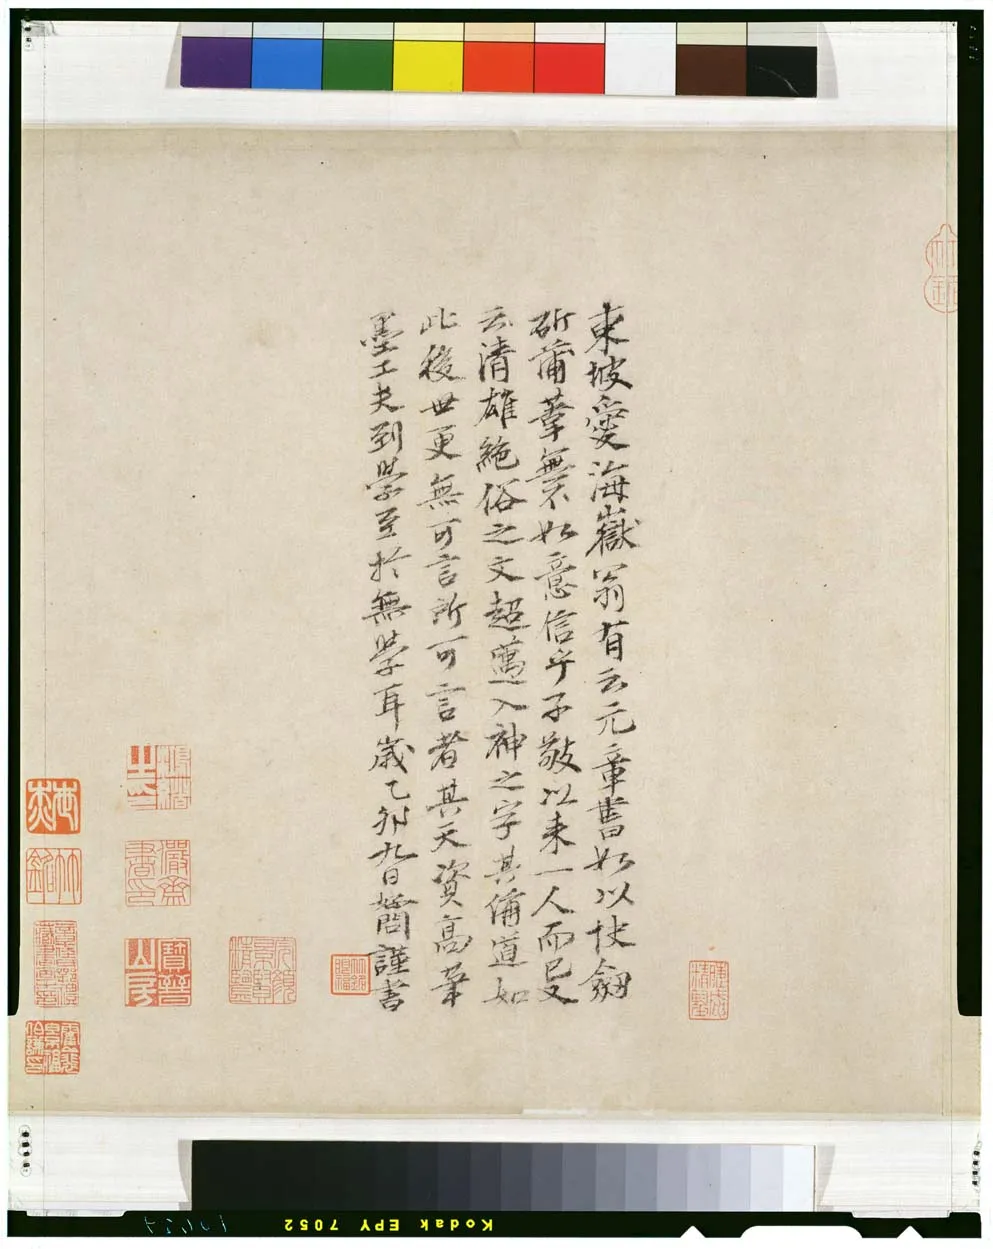 東坡愛海嶽翁有云元章書如以快劒
斫蒲葦無不如意信乎子敬以来一人而已又
云清雄絶俗之文超邁入神之字其備道如
此後世更無可言所可言者其天資高筆
墨工夫到學至於無學耳歲乙卯九日好問謹書
寶晉山房
Kodak EPY 7052